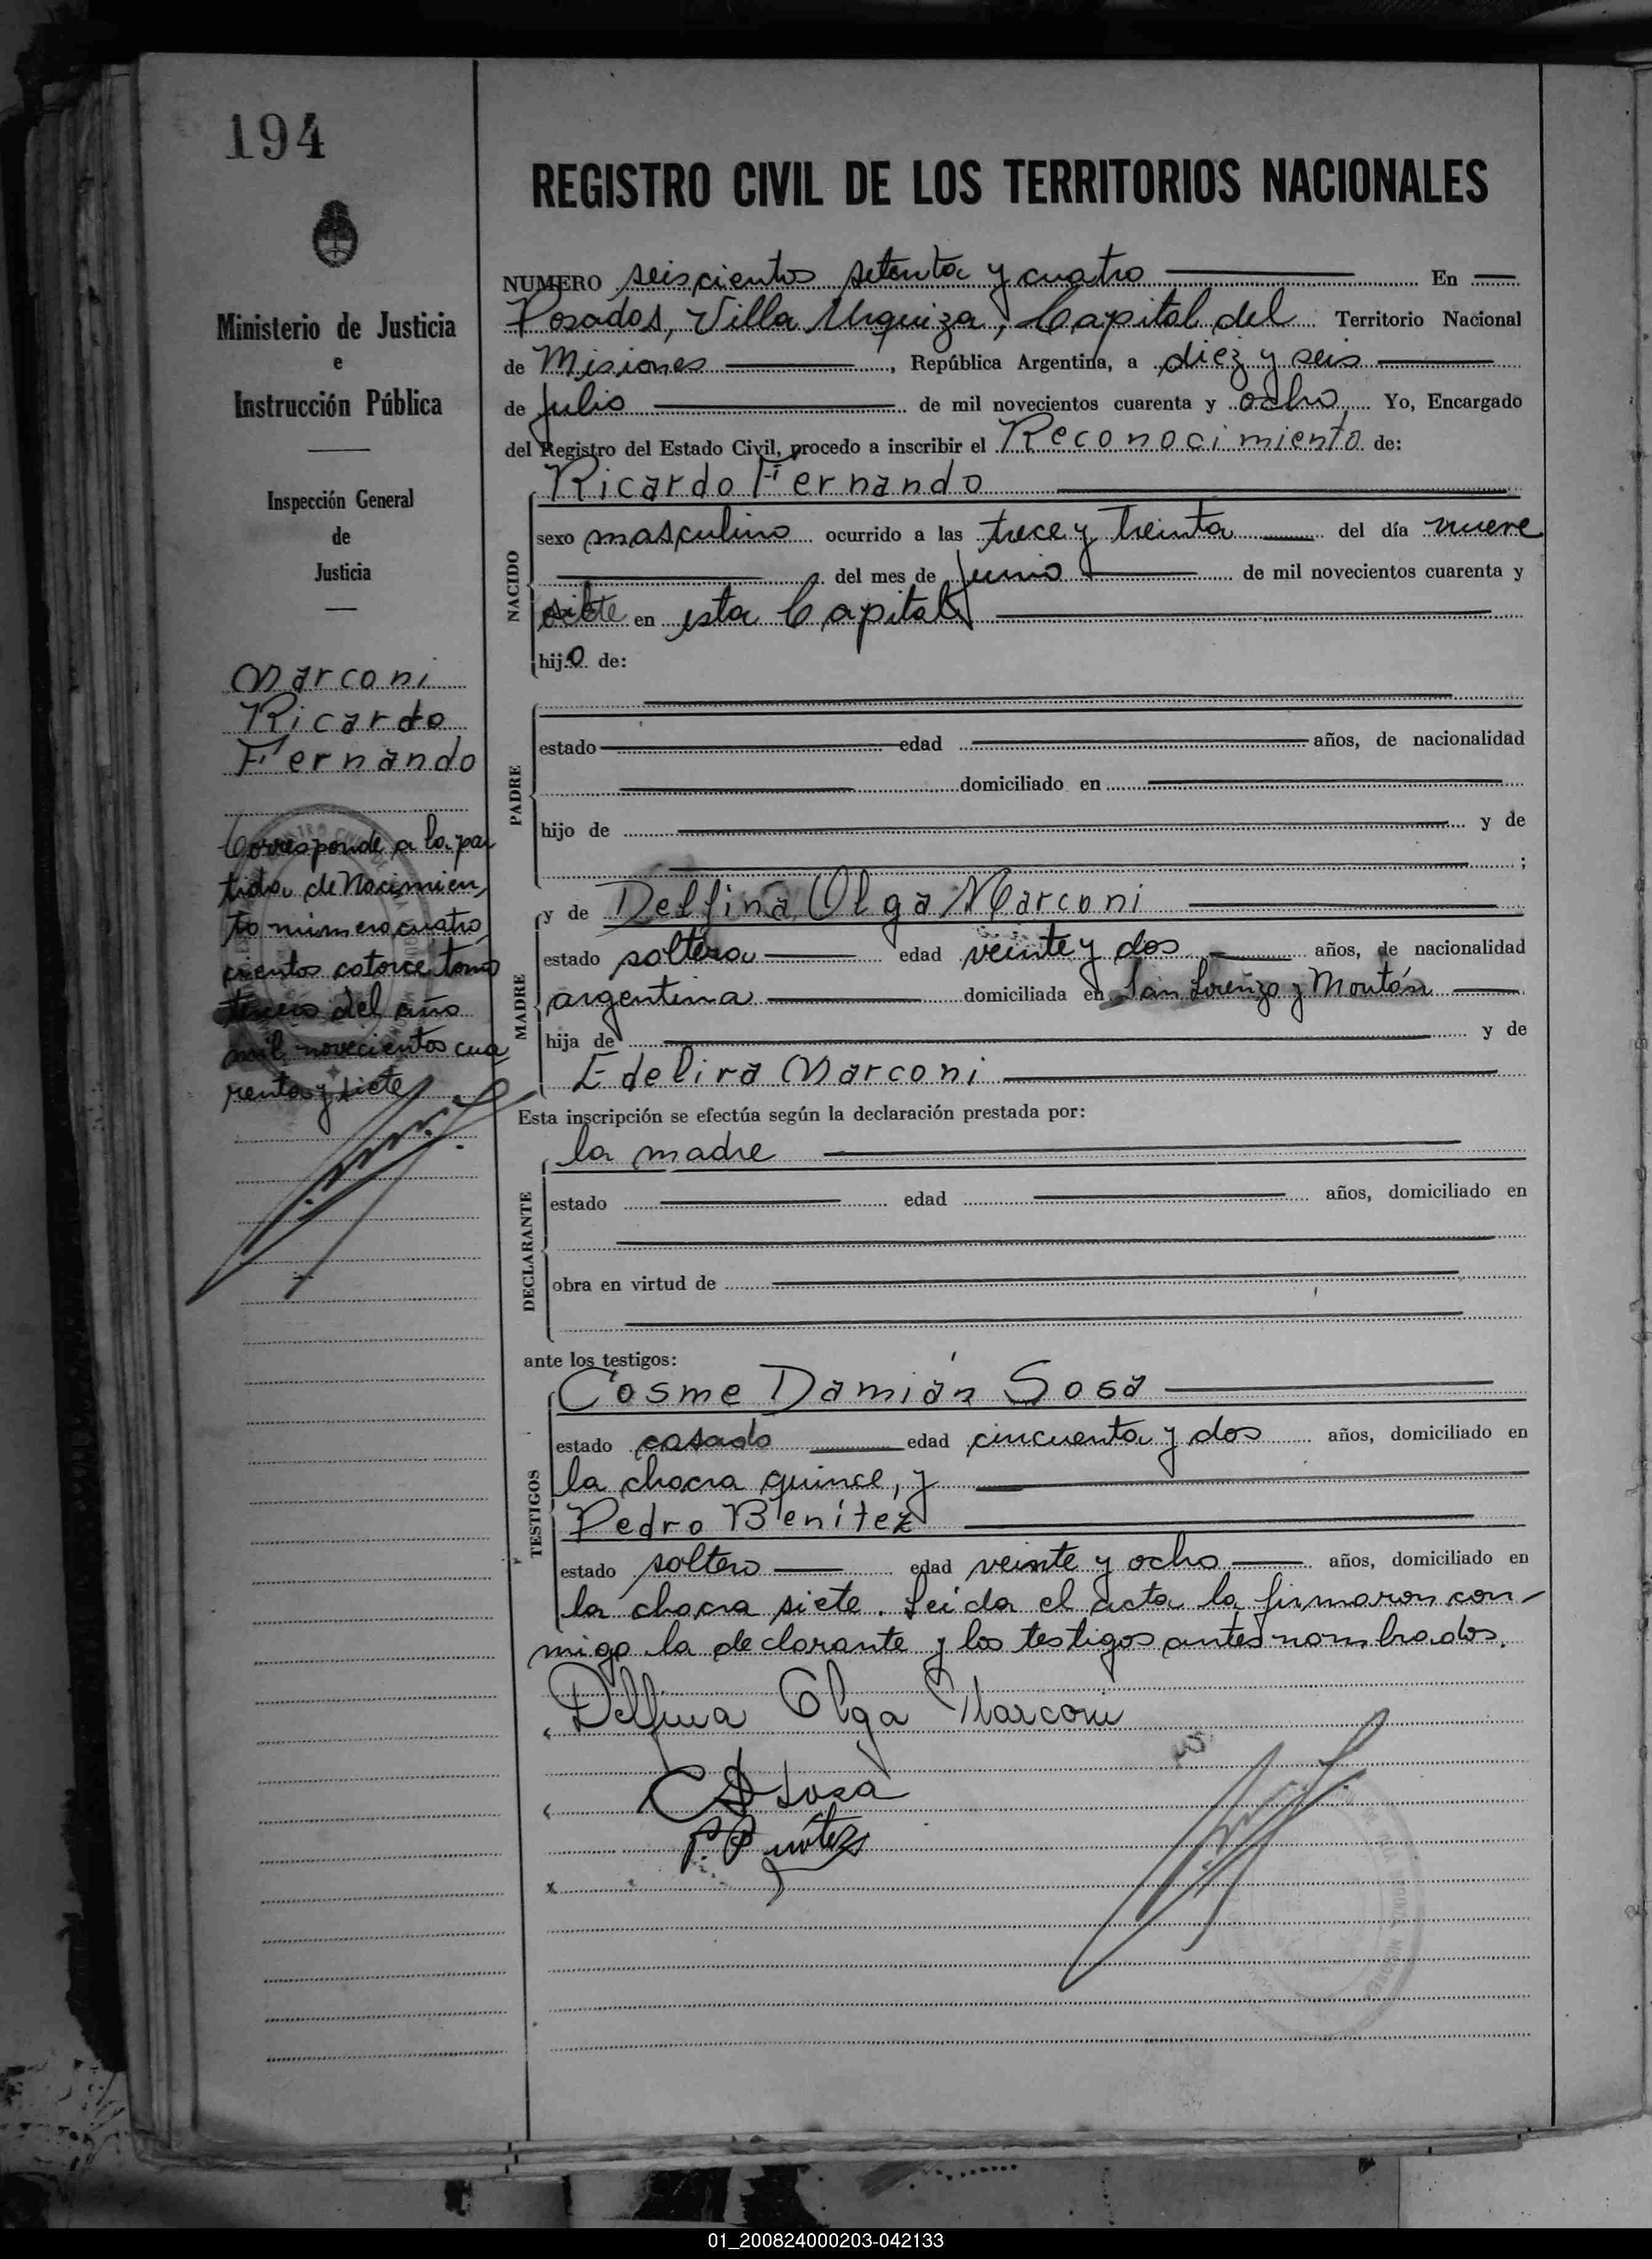 194
Ministerio de Justicia
e
Instrucción Pública
Inspección General
de
Justicia
Marconi
Ricardo
Fernando
Corresponde a la par
tida de Nacimien
to número cuatro
cientos catorce tomo
tercero del año
mil novecientos cua
renta y siete
REGISTRO CIVIL DE LOS TERRITORIOS NACIONALES
NUMERO seiscientos setenta y cuatro En
Posadas, Villa Urquiza, Capital del Territorio Nacional
de Misiones, República Argentina, a diez y seis
de julio de mil novecientos cuarenta y ocho Yo, Encargado
del Registro del Estado Civil, procedo a inscribir el Reconocimiento de:
Ricardo Fernando
NACIDO
sexo masculino ocurrido a las trece y treinta del día nueve
del mes de junio de mil novecientos cuarenta y
siete en esta Capital
hijo de:
PADRE
estado edad años, de nacionalidad
domiciliado en
hijo de y de
;
MADRE
y de Delfina Olga Marconi
estado soltera edad veinte y dos años, de nacionalidad
argentina domiciliada en San Lorenzo y Montán
hija de y de
Edelira Marconi
Esta inscripción se efectúa según la declaración prestada por:
DECLARANTE
la madre
estado edad años, domiciliado en
obra en virtud de
ante los testigos:
TESTIGOS
Cosme Damián Sosa
estado casado edad cincuenta y dos años, domiciliado en
la chacra quince, y
Pedro Benítez
estado soltero edad veinte y ocho años, domiciliado en
la chacra siete. Leída el acta la firmaron con-
migo la declarante y los testigos antes nombrados.
Delfina Olga Marconi
C D Sosa
P. Benítez
01_200824000203-042133